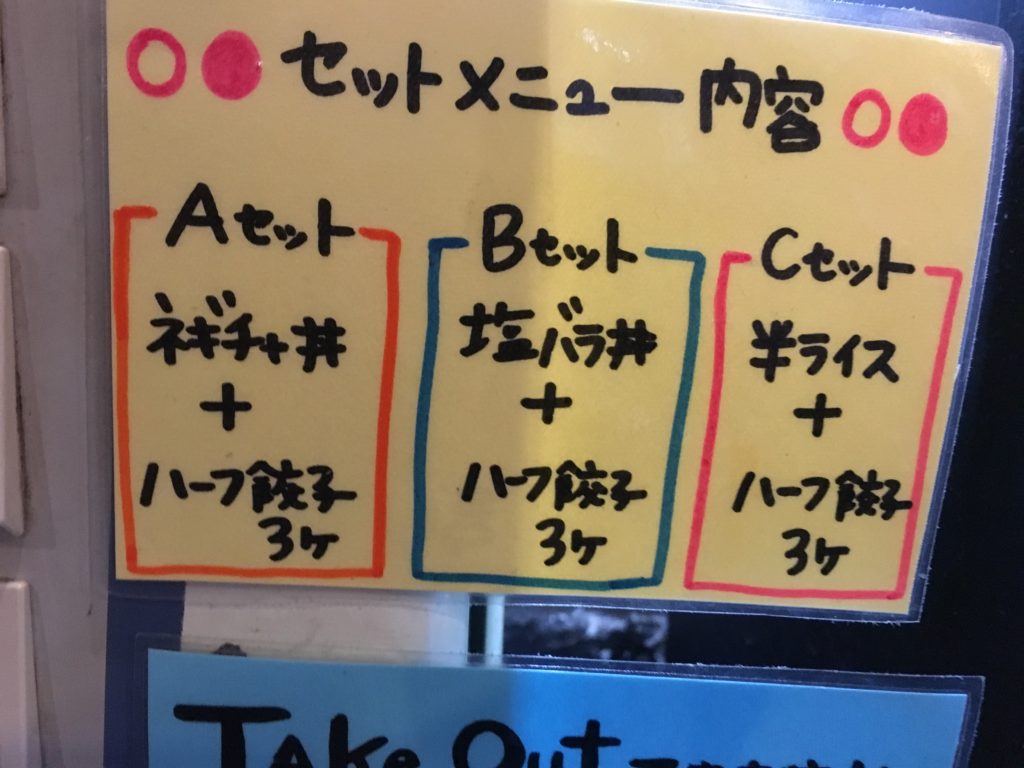 セットメニュー内容
Aセット
ネギチャ丼
+
ハーフ餃子
3ヶ
Bセット
塩バラ丼
+
ハーフ餃子
3ヶ
Cセット
半ライス
+
ハーフ餃子
3ヶ
Take Out